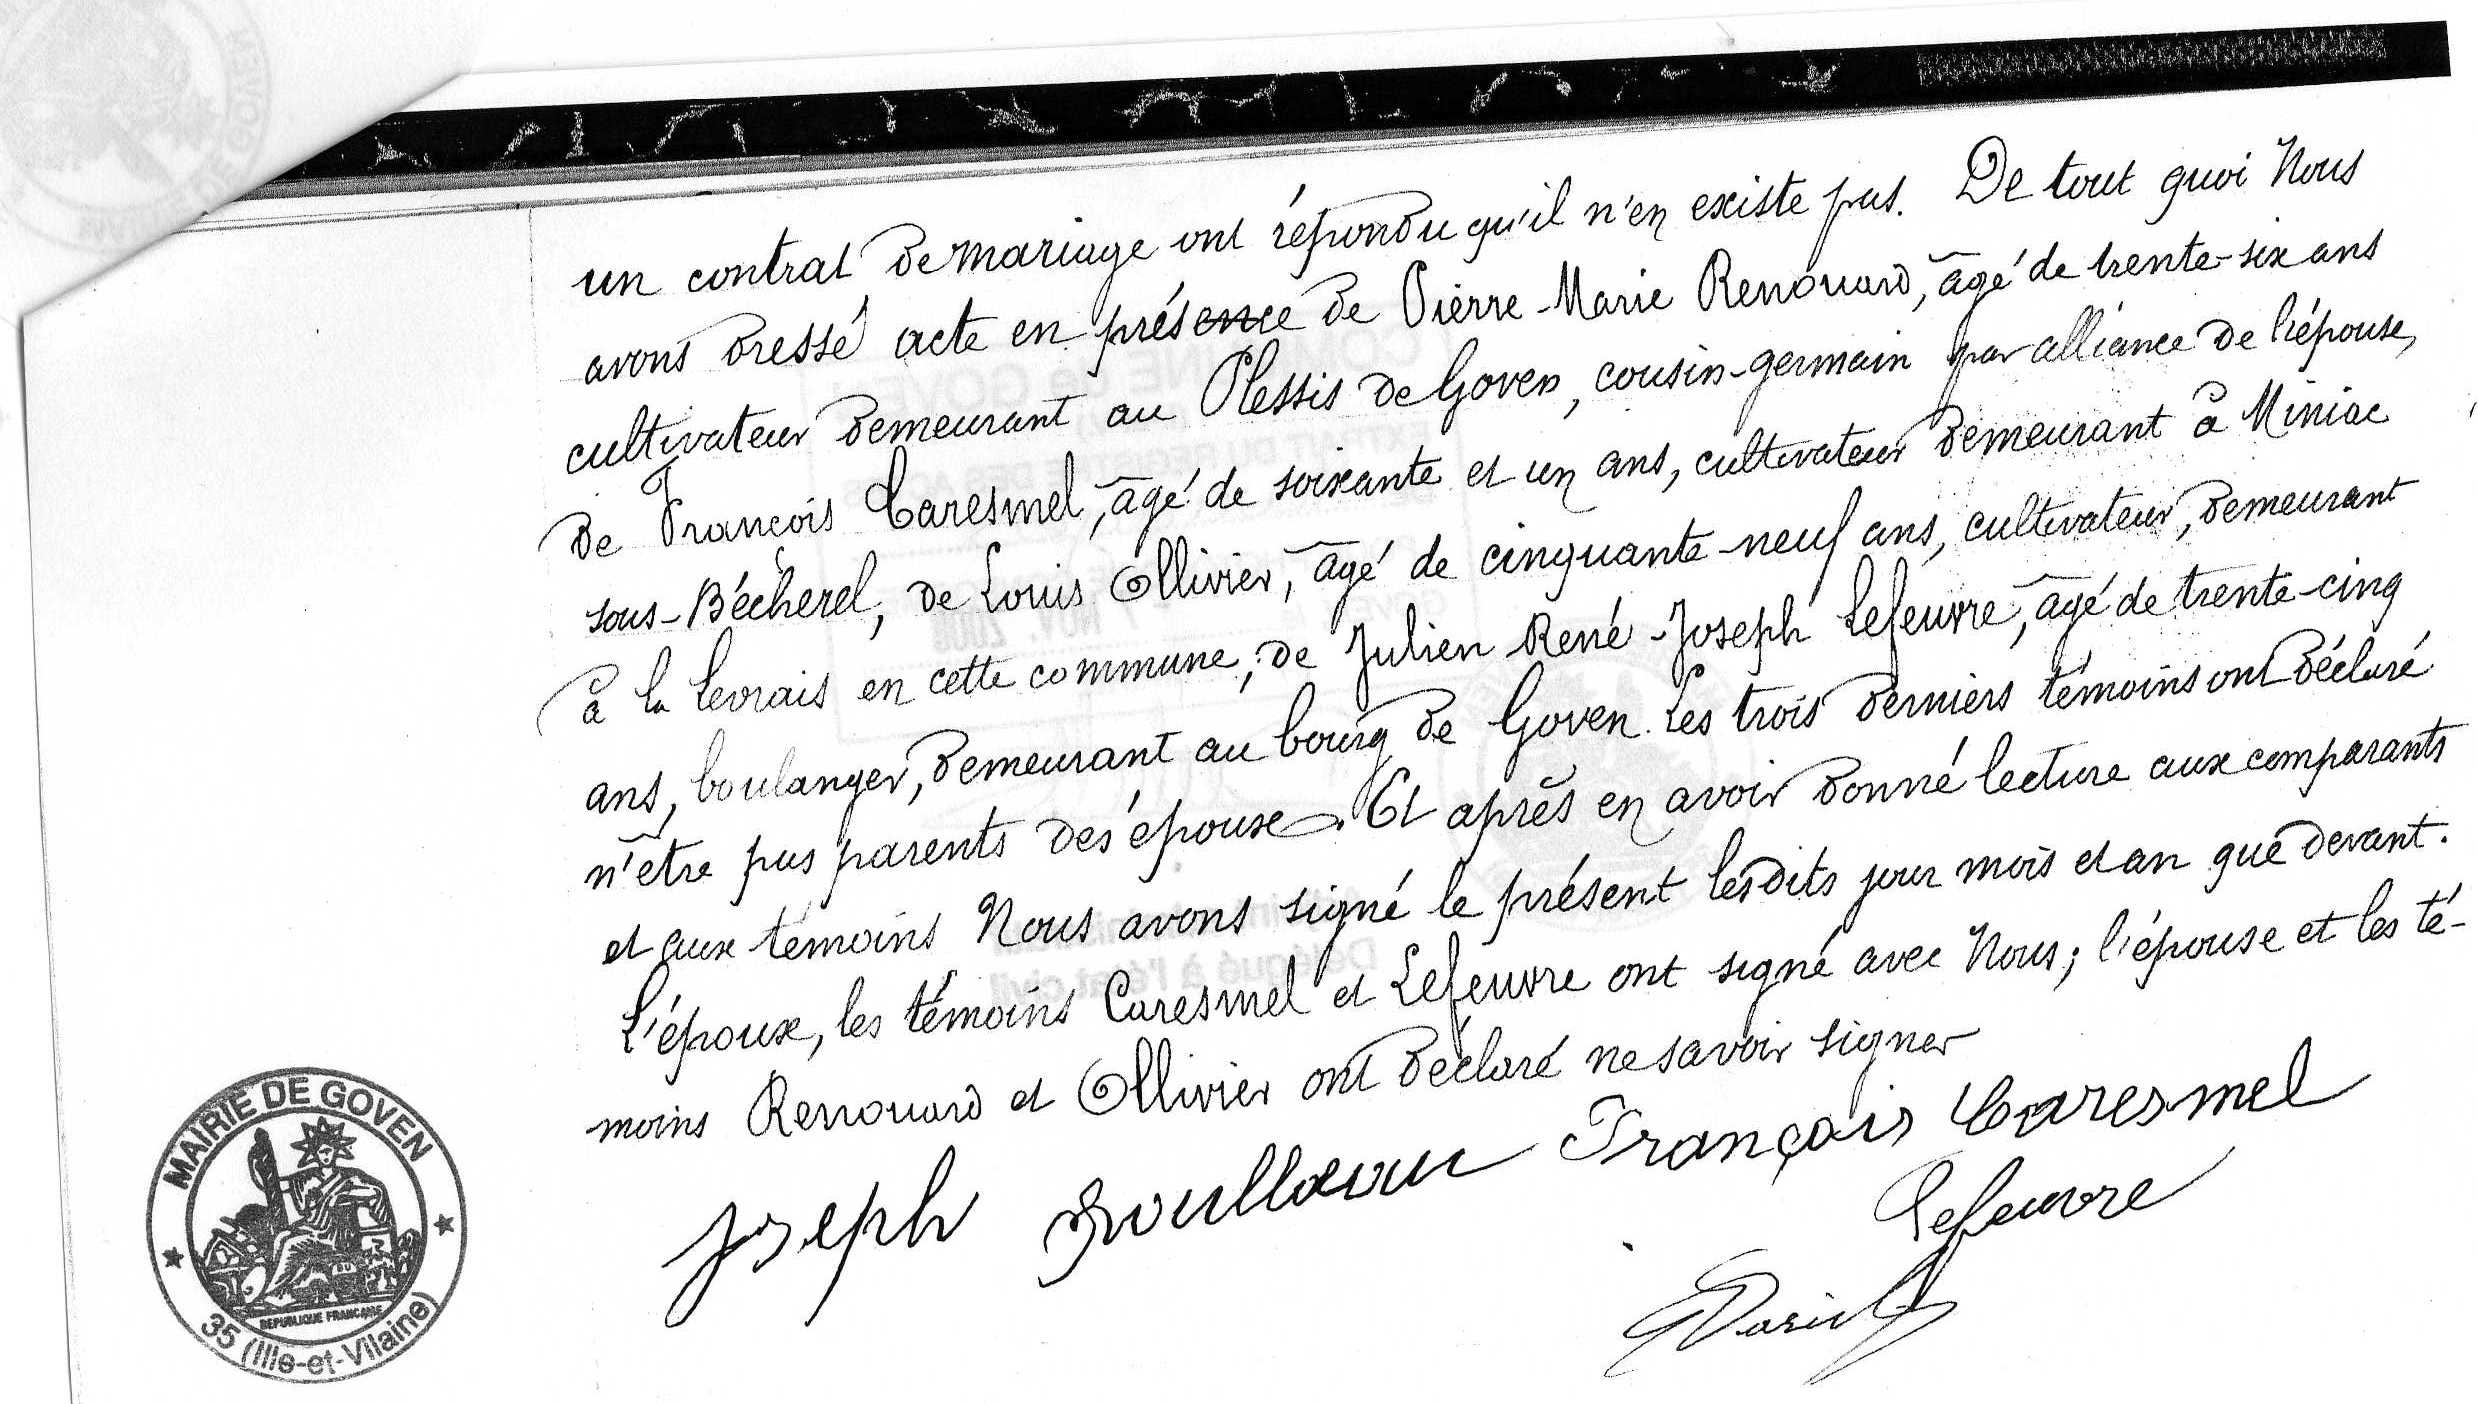 un contrat de mariage ont répondu qu'il n'en existe pas. De tout quoi Nous
avons dressé acte en présence de Pierre-Marie Renouard, âgé de trente-six ans
cultivateur demeurant au Plessis de Goven, cousin-germain par alliance de l'épouse,
de François Caresmel, âgé de soixante et un ans, cultivateur demeurant à Miniac
sous-Bécherel, de Louis Ollivier, âgé de cinquante-neuf ans, cultivateur, demeurant
à la Levrais en cette commune; de Julien René-Joseph Lefeuvre, âgé de trente-cinq
ans, boulanger, demeurant au bourg de Goven. Les trois derniers témoins ont déclaré
n'être pas parents des épouse. Et après en avoir donné lecture aux comparants
et aux témoins Nous avons signé le présent lesdits jour mois et an que devant.
L'époux, les témoins Caresmel et Lefeuvre ont signé avec Nous; l'épouse et les té-
moins Renouard et Ollivier ont déclaré ne savoir signer
Joseph François Caresmel
Lefeuvre
MAIRIE DE GOVEN
REPUBLIQUE FRANCAISE
35 (Ille-et-Vilaine)